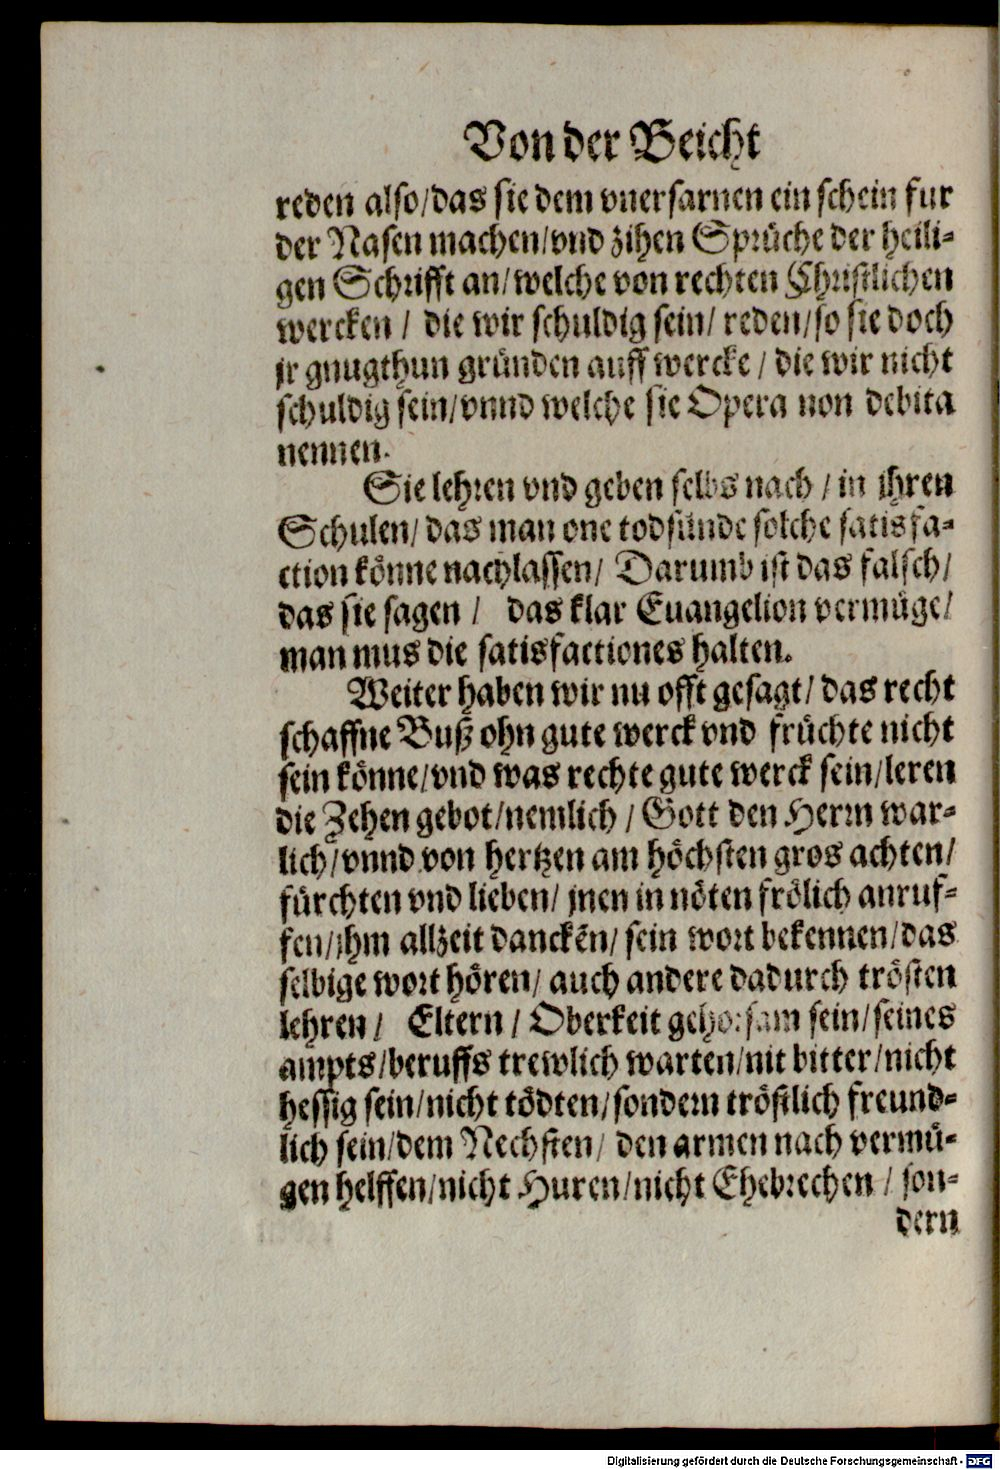 Von der Beicht
reden also/das sie dem vnerfarnen ein schein fur
der Nasen machen/vnd zihen Sprüche der heili-
gen Schrifft an/welche von rechten Christlichen
wercken / die wir schuldig sein/ reden/so sie doch
jr gnugthun gründen auff wercke / die wir nicht
schuldig sein/vnnd welche sie Opera non debita
nennen.
Sie lehren vnd geben selbs nach / in ihren
Schulen/ das man one todsünde solche satisfa-
ction könne nachlassen/ Darumb ist das falsch/
das sie sagen / das klar Euangelion vermüge/
man mus die satisfactiones halten.
Weiter haben wir nu offt gesagt/ das recht
schaffne Buß ohn gute werck vnd früchte nicht
sein könne/vnd was rechte gute werck sein/leren
die Zehen gebot/nemlich / Gott den Herrn war-
lich/vnnd von hertzen am höchsten gros achten/
fürchten vnd lieben/ jnen in nöten frölich anruf-
fen/ihm allzeit danckēn/ sein wort bekennen/das
selbige wort hören/ auch andere dadurch trösten
lehren / Eltern / Oberkeit gehorsam sein/seines
ampts/beruffs trewlich warten/nit bitter/nicht
hessig sein/nicht tödten/sondern tröstlich freund-
lich sein/dem Nechsten/ den armen nach vermü-
gen helffen/nicht Huren/nicht Ehebrechen / son-
dern
Digitalisierung gefördert durch die Deutsche Forschungsgemeinschaft - DFG